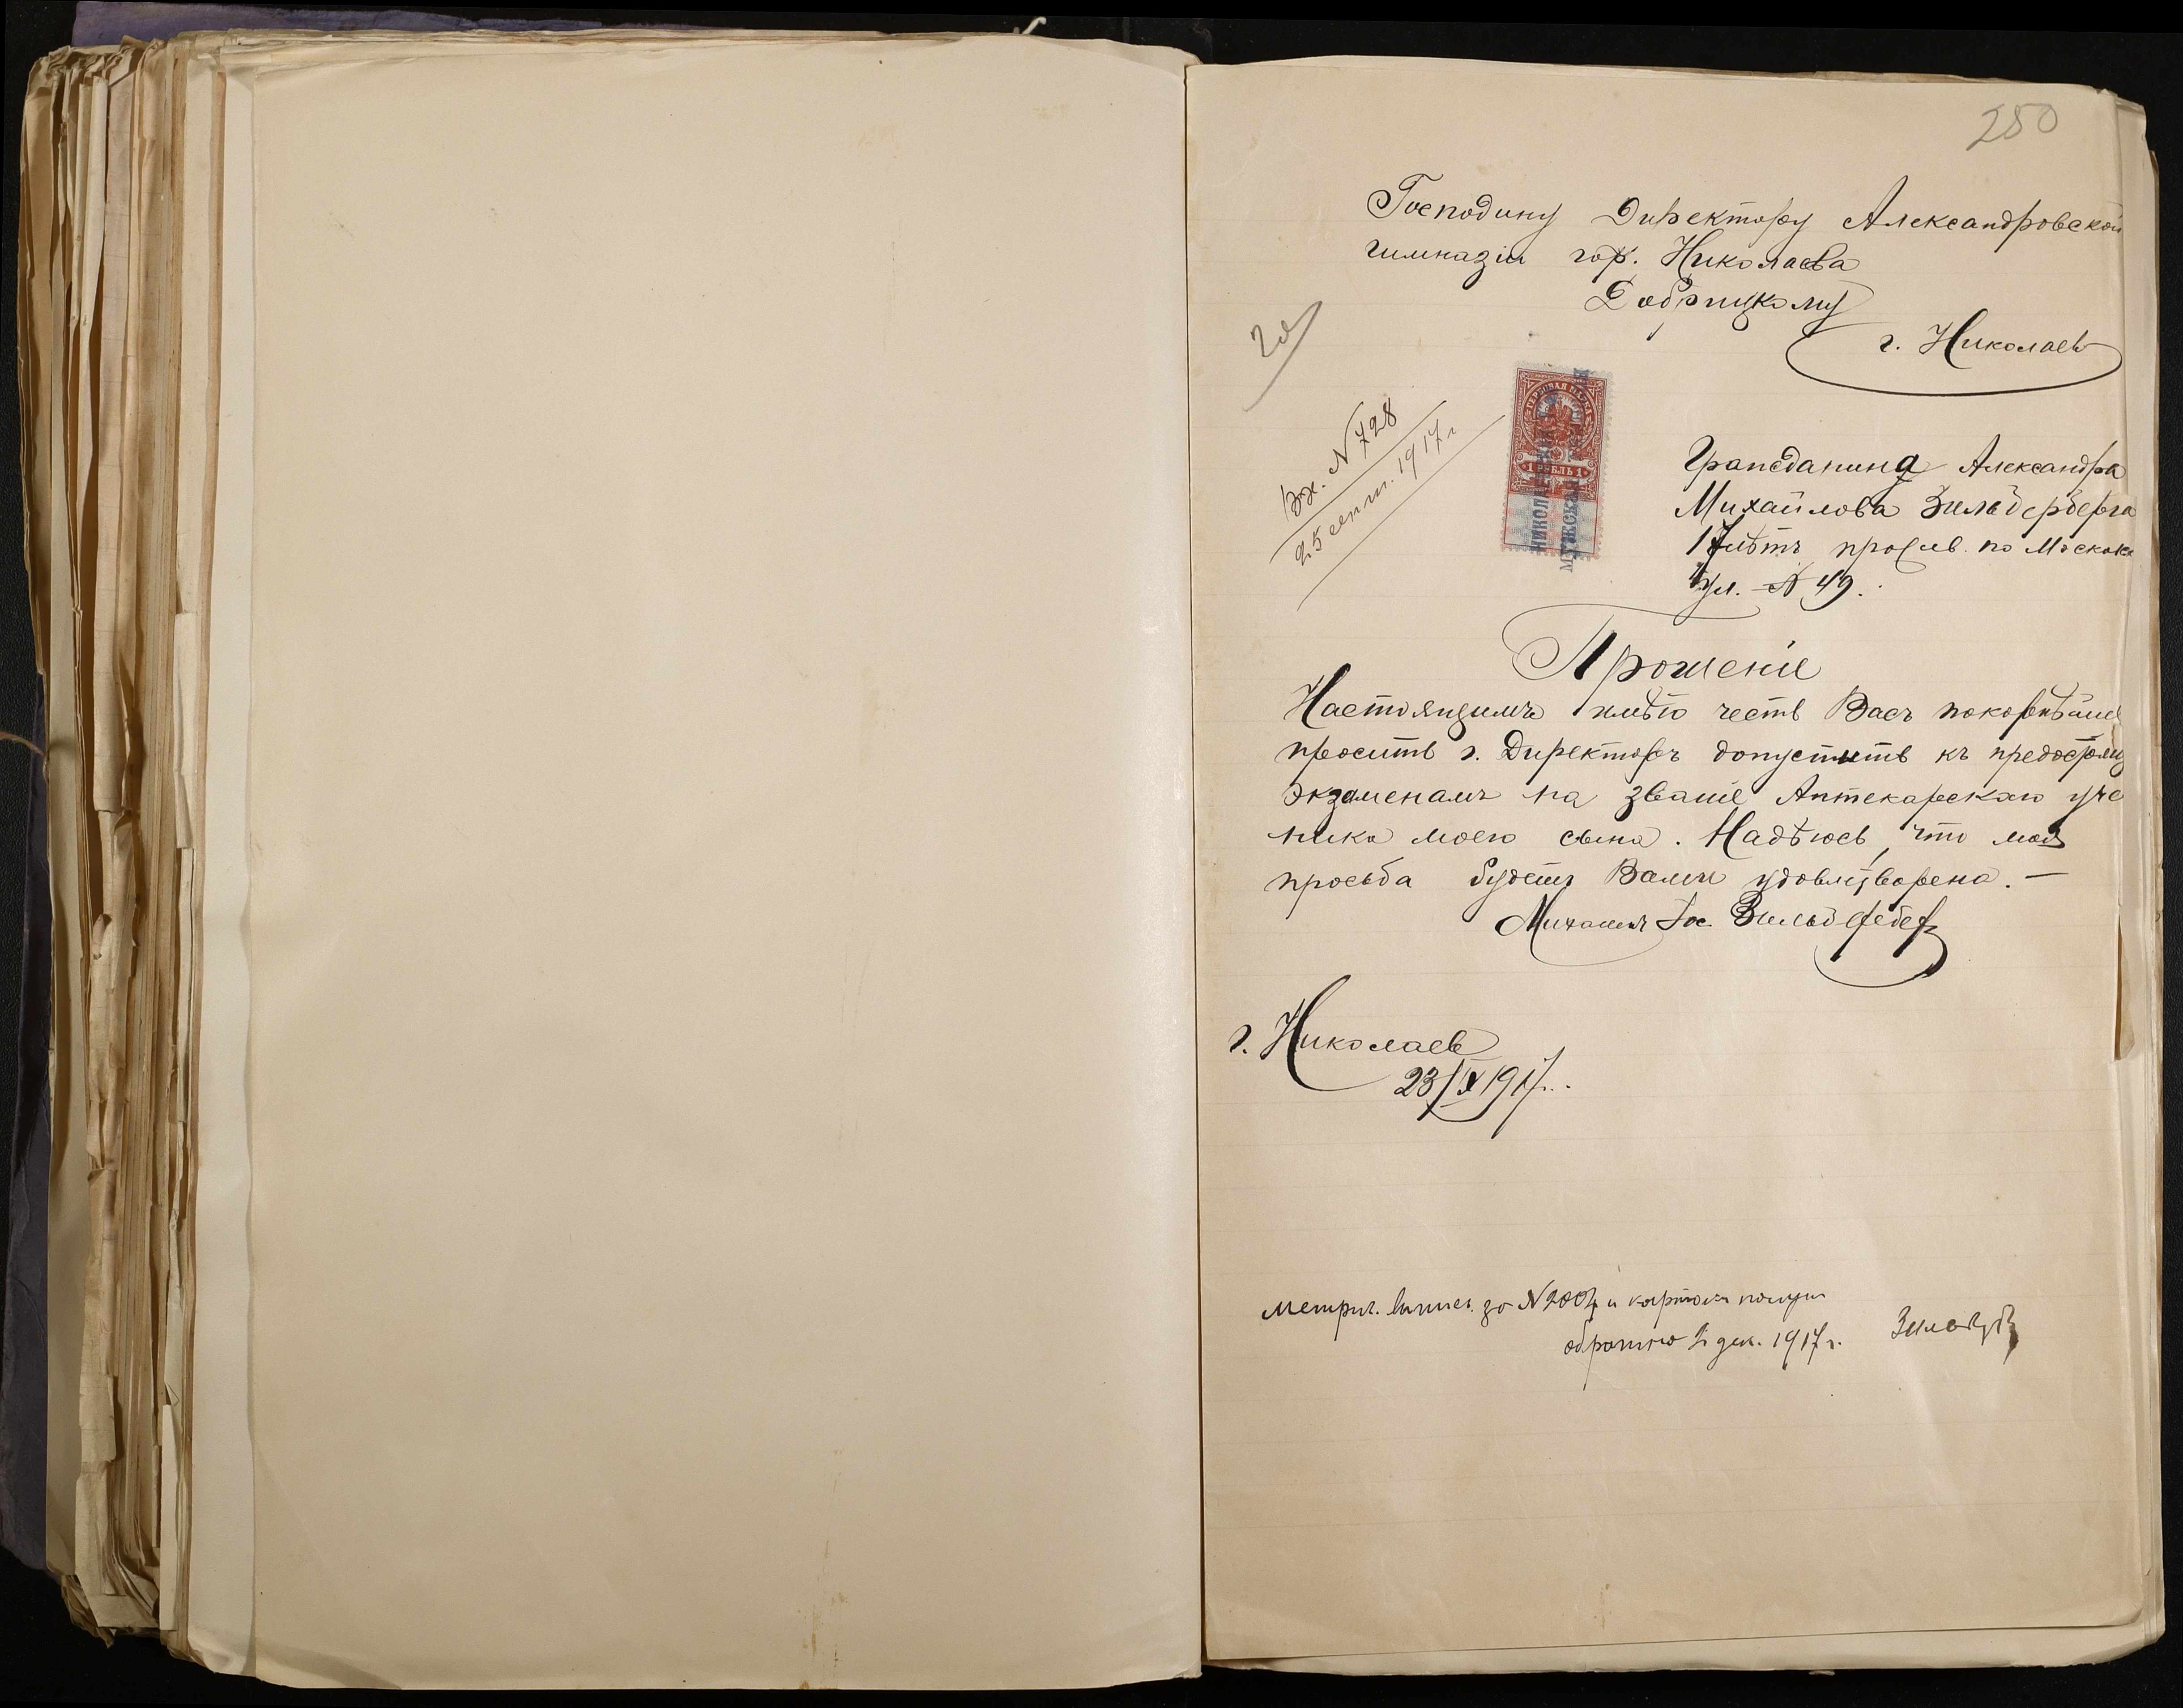 250
Господину Директору Александровской
гимназіи гор. Николаева
Добрицкому
г. Николаев
20
Вх. N 728
25 сент. 1917 г
ГЕРБОВАЯ МАРКА
1 РУБЛЬ 1
НИКОЛАЕВСКАЯ
МУЖСКАЯ
Гражданина Александра
Михайлова Зильберберга
17 лѣтъ прожив. по Москов
ул. № 49.
Прошеніе
Настоящимъ имѣю честь Васъ покорнѣйше
просить г. Директоръ допустить къ предстоящ
экзаменамъ на званіе Аптекарскаго уче
ника моего сына. Надѣюсь, что моя
просьба будетъ Вами удовлетворена. —
Михаилъ Іос. Зильберберг
г. Николаев
23/IX 1917 г.
Метрич. выпись за N 2004 и карточки получил
обратно 2 дек. 1917 г.